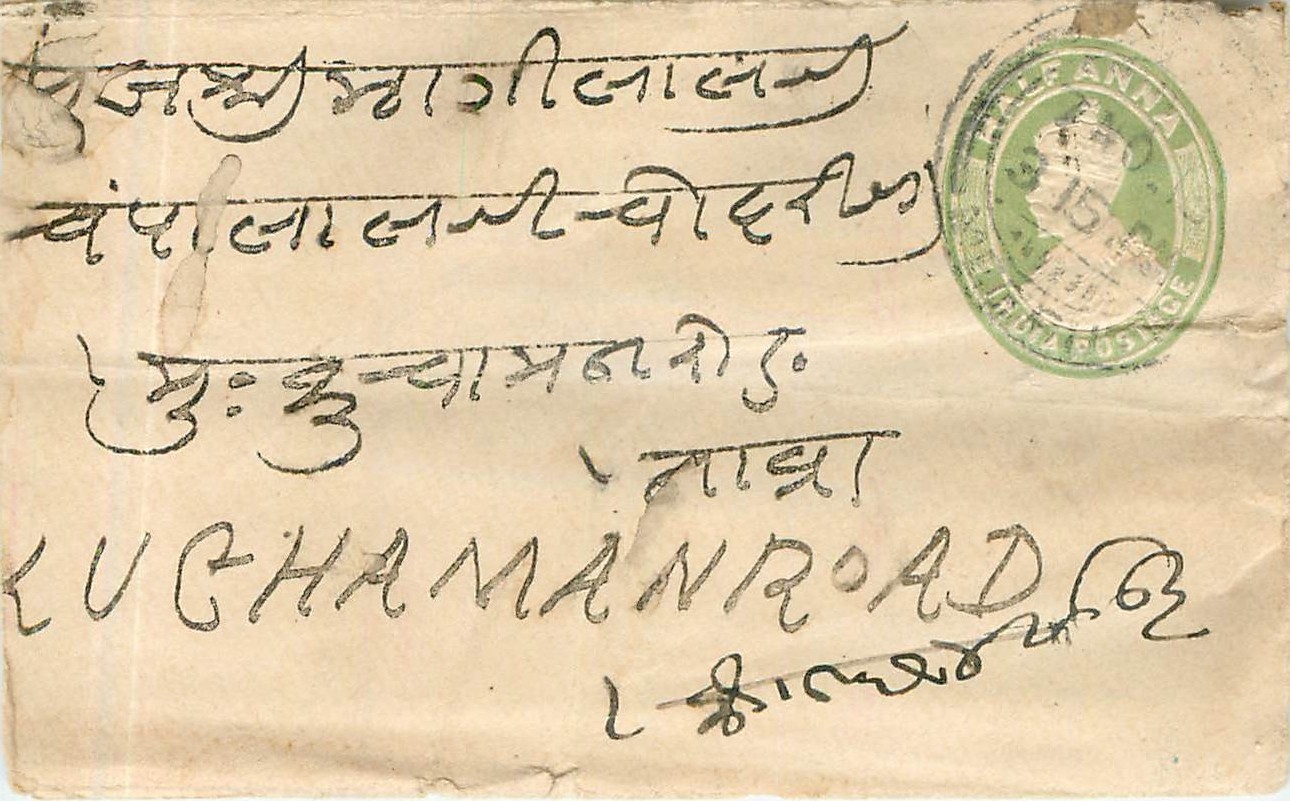 पुजश्री मागीलालजी
चंपालालजी चोदरी
मुः कुचामन रोड.
नावा
KUCHAMAN ROAD
HALF ANNA
INDIA POSTAGE
15